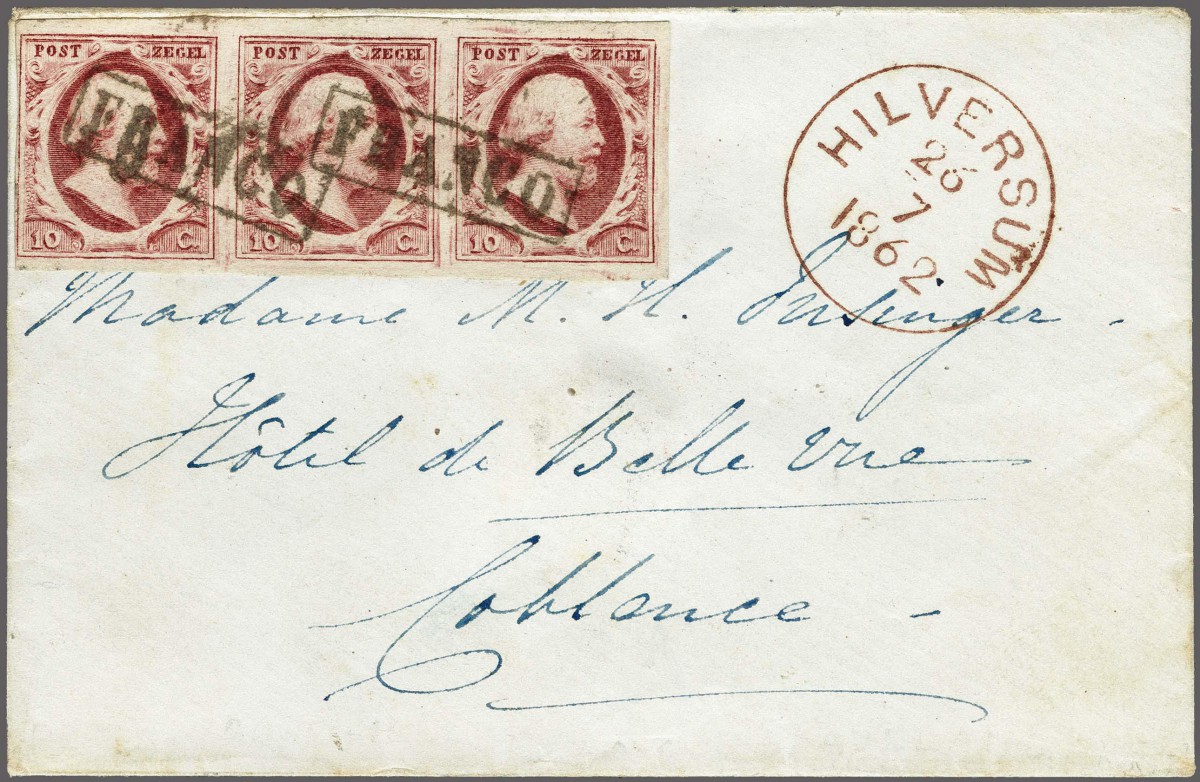 POST ZEGEL POST ZEGEL POST ZEGEL
FRANCO FRANCO
10 C. 10 C. 10 C.
HILVERSUM
26
7
1862
Madame M. H. Insinger -
Hôtel de Belle vue
Coblence -